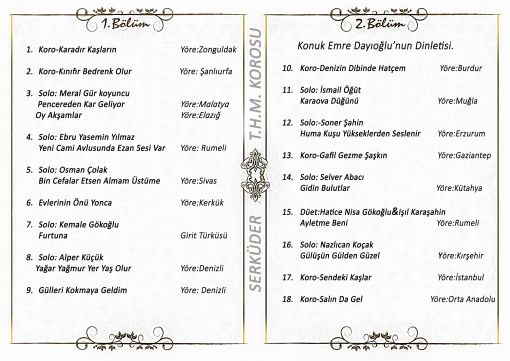 1.Bölüm
1. Koro-Karadır Kaşların Yöre:Zonguldak
2. Koro-Kınıfır Bedrenk Olur Yöre: Şanlıurfa
3. Solo: Meral Gür koyuncu
Pencereden Kar Geliyor Yöre:Malatya
Oy Akşamlar Yöre:Elazığ
4. Solo: Ebru Yasemin Yılmaz
Yeni Cami Avlusunda Ezan Sesi Var Yöre: Rumeli
5. Solo: Osman Çolak
Bin Cefalar Etsen Almam Üstüme Yöre:Sivas
6. Evlerinin Önü Yonca Yöre:Kerkük
7. Solo: Kemale Gökoğlu
Furtuna Girit Türküsü
8. Solo: Alper Küçük
Yağar Yağmur Yer Yaş Olur Yöre:Denizli
9. Gülleri Kokmaya Geldim Yöre: Denizli
SERKÜDER T.H.M. KOROSU
2.Bölüm
Konuk Emre Dayıoğlu'nun Dinletisi.
10. Koro-Denizin Dibinde Hatçem Yöre:Burdur
11. Solo: İsmail Öğüt
Karaova Düğünü Yöre:Muğla
12. Solo:-Soner Şahin
Huma Kuşu Yükseklerden Seslenir Yöre:Erzurum
13. Koro-Gafil Gezme Şaşkın Yöre:Gaziantep
14. Solo: Selver Abacı
Gidin Bulutlar Yöre:Kütahya
15. Düet:Hatice Nisa Gökoğlu&Işıl Karaşahin
Ayletme Beni Yöre:Rumeli
16. Solo: Nazlıcan Koçak
Gülüşün Gülden Güzel Yöre:Kırşehir
17. Koro-Sendeki Kaşlar Yöre:İstanbul
18. Koro-Salın Da Gel Yöre:Orta Anadolu